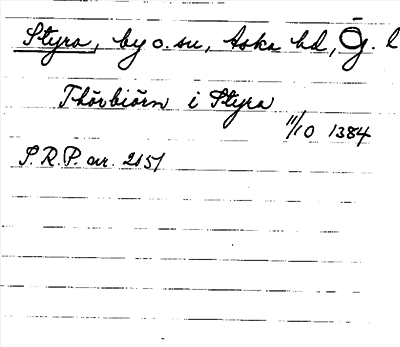 Styra, by o. sn, Aska hd, Ög. l
Thörbiörn i Styra
11/10 1384
S.R.P. nr. 2151